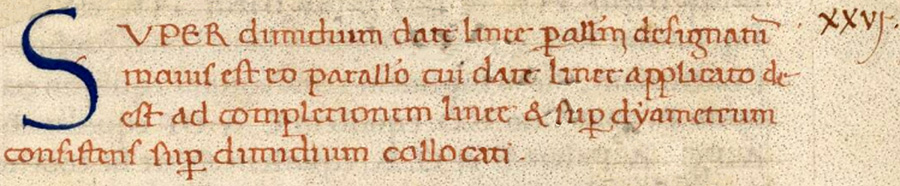 SVPER dimidium date linee ꝑallm̄ designatū xxvj.
maius est eo parallo cui date linee applicato de-
est ad completionem linee & suꝑ dyametrum
consistens suꝑ dimidium collocati.